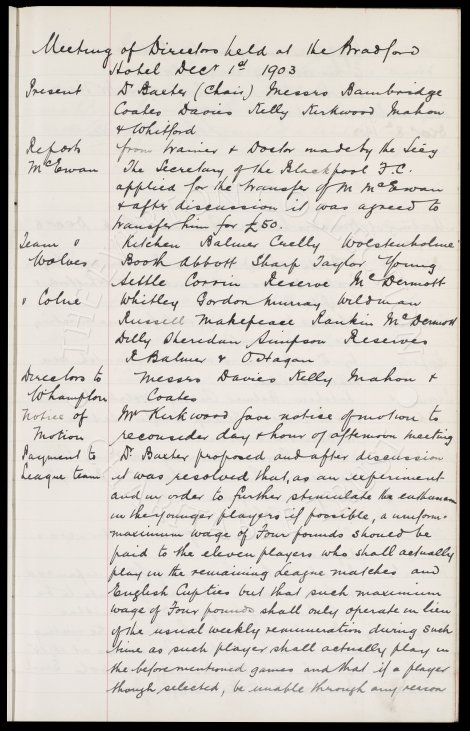 Meeting of Directors held at the Bradford
Hotel Decr 1st 1903
Present Dr Baxter (Chair) Messrs Bainbridge
Coates Davies Kelly Kirkwood Mahon
& Whitford
Reports from Trainer & Doctor made by the Secy
McEwan The Secretary of the Blackpool F.C.
applied for the transfer of M McEwan
& after discussion it was agreed to
transfer him for £50.
Team v Kitchen Balmer Crelly Wolstenholme
Wolves Booth Abbott Sharp Taylor Young
Settle Corrin Reserve McDermott
" Colne Whitley Gordon Murray Wildman
Russell Makepeace Rankin McDermott
Dilly Sheridan Simpson Reserves
R Balmer & O'Hagan
Directors to Messrs Davies Kelly Mahon &
Whampton Coates
Notice of Mr Kirkwood gave notice of motion to
Motion reconsider day & hour of afternoon meeting
Payment to Dr Baxter proposed and after discussion
League team it was resolved that, as an experiment
and in order to further stimulate the enthusiasm
in the younger players if possible, a uniform
maximum wage of Four pounds should be
paid to the eleven players who shall actually
play in the remaining League matches and
English Cup ties but that such maximum
wage of Four pounds shall only operate in lieu
of the usual weekly remuneration during such
time as such player shall actually play in
the before mentioned games and that if a player
though selected, be unable through any reason